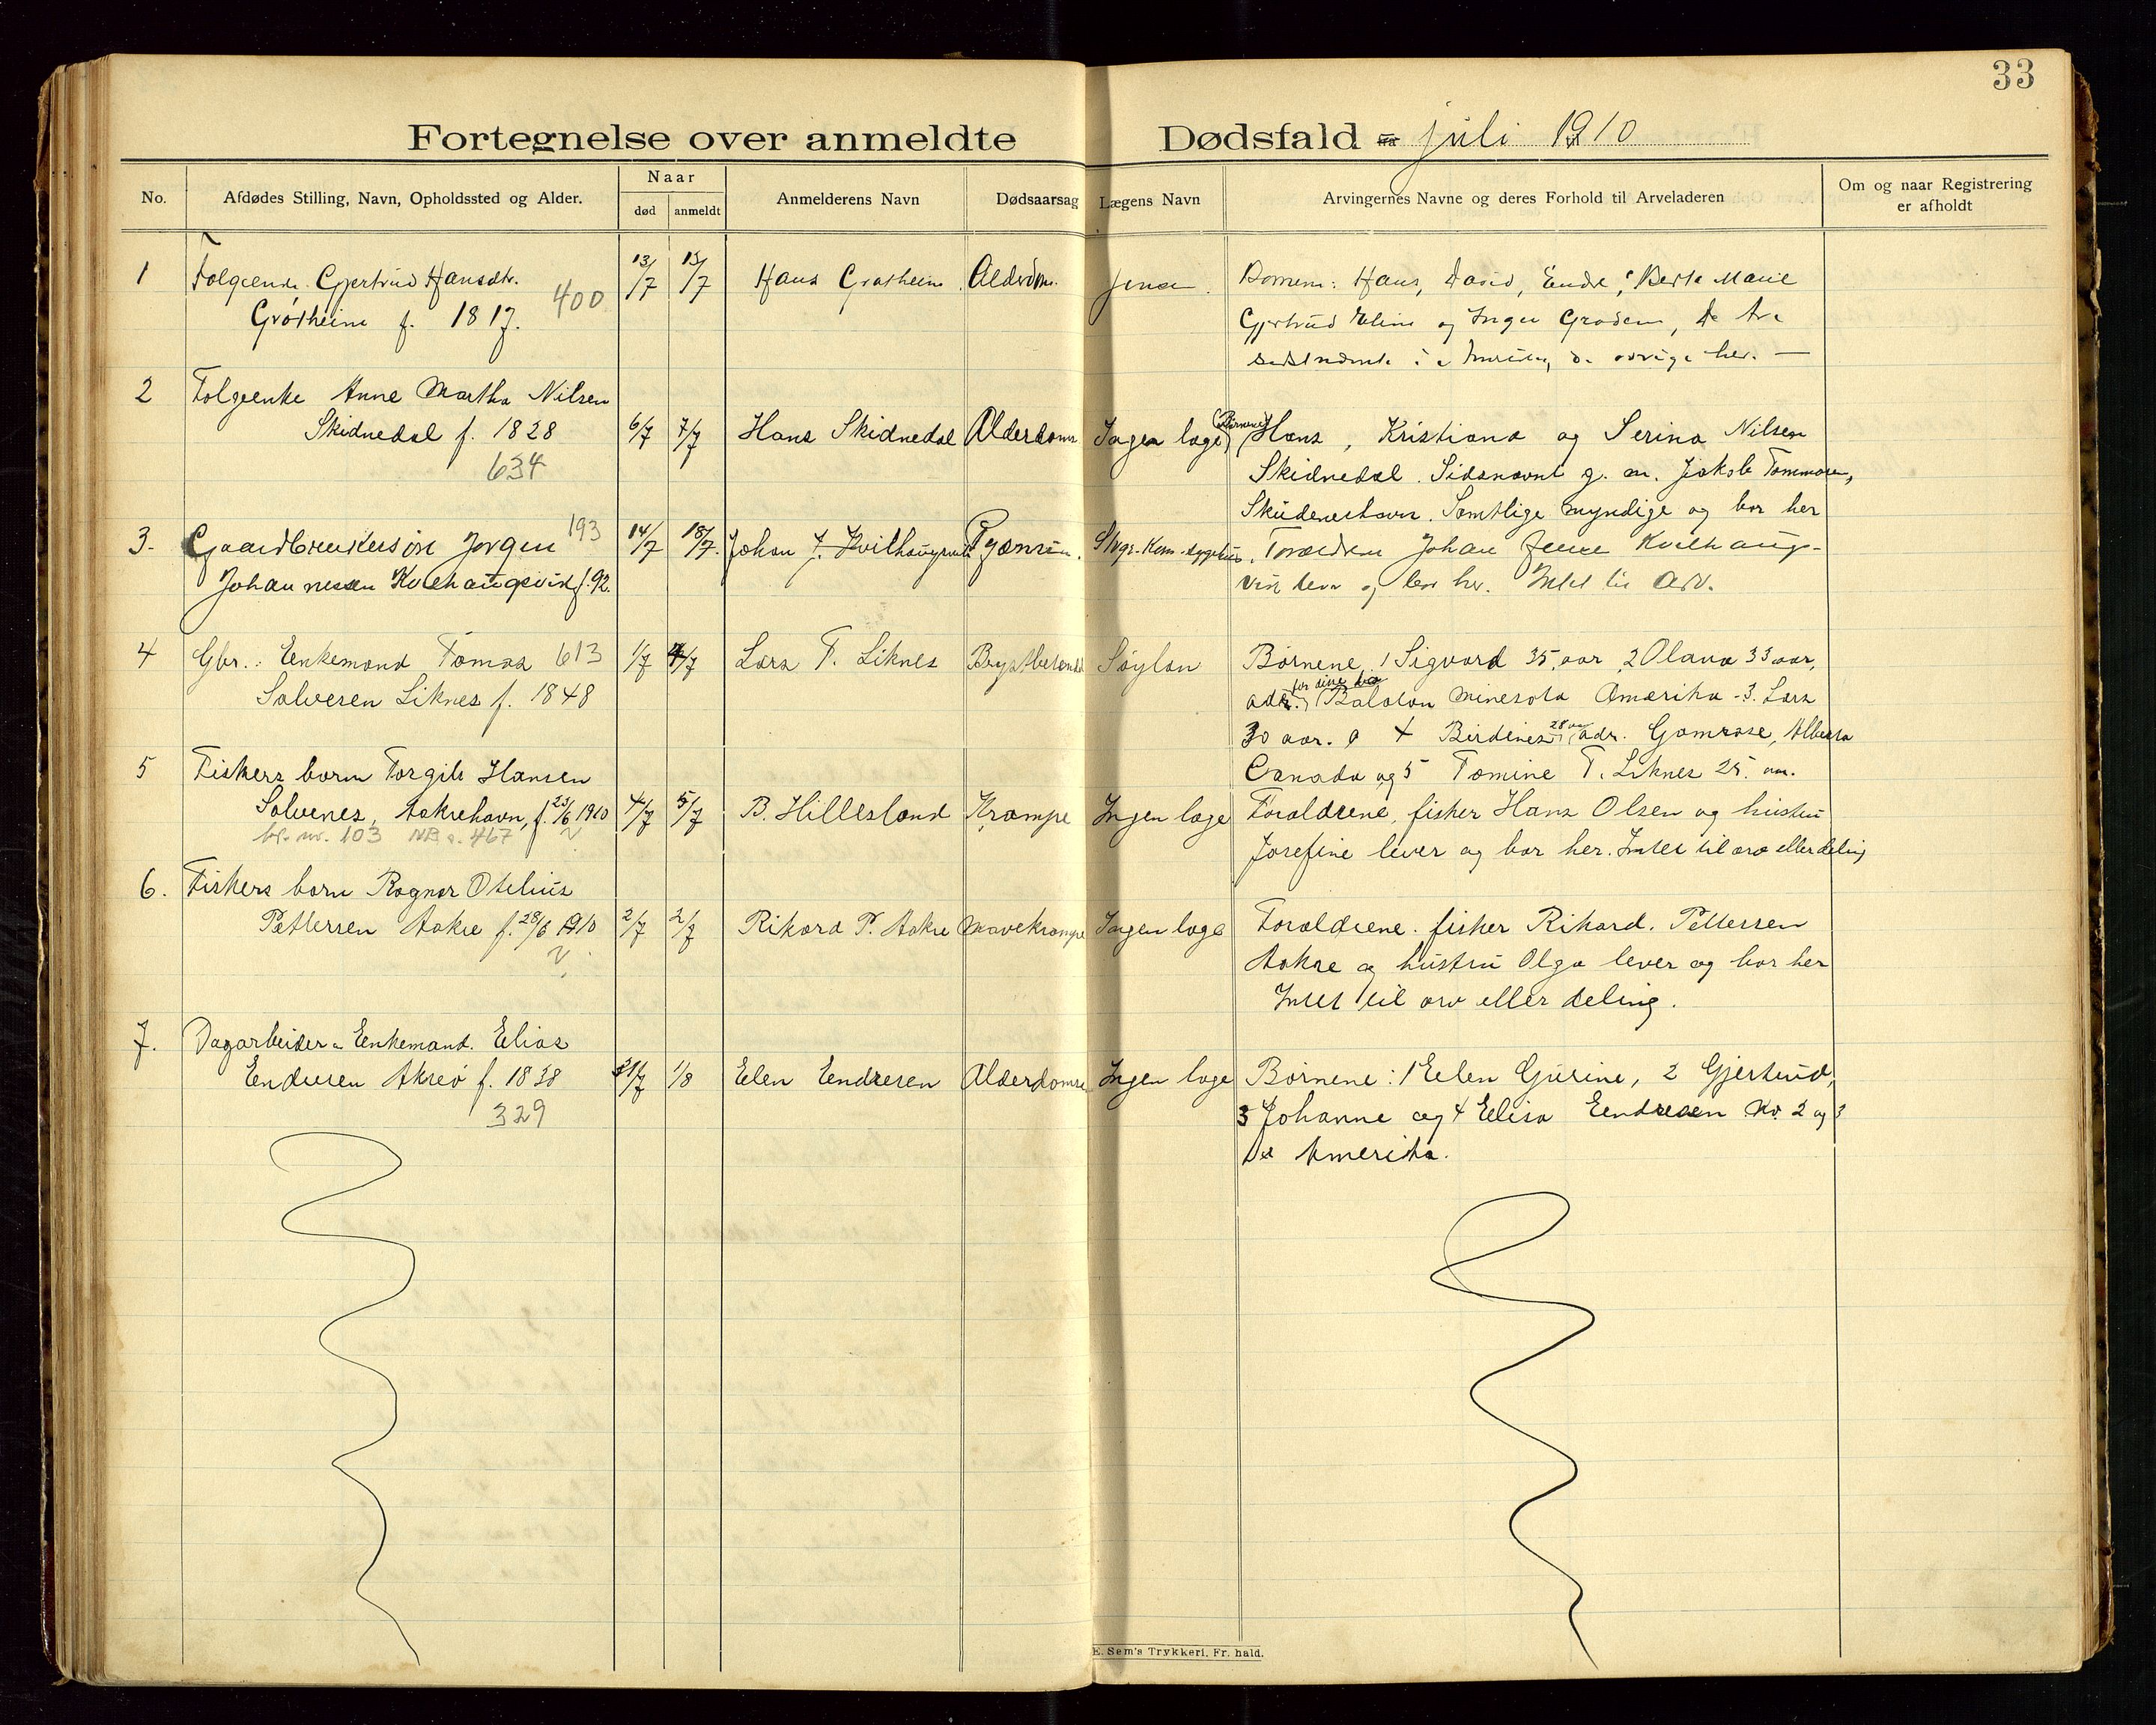 33
Fortegnelse over anmeldte Dødsfald juli 1910
No. Afdødes Stilling, Navn, Opholdssted og Alder. Naar død anmeldt Anmelderens Navn Dødsaarsag Lægens Navn Arvingernes Navne og deres Forhold til Arveladeren Om og naar Registrering er afholdt
1 Gjertrud Hansdtr. 13/7 15/7 Hans Alderdom. Hans, David, Endre, Berte Marie
f. 1817. 400 Gjertrud Eline og Inger
de øvrige her. —
2 Folgeenke Anne Martha Nilsen
Skidnedal f. 1828 6/7 7/7 Hans Skidnedal Alderdom Ingen læge (Børnene) Hans, Kristiana og Serina Nilsen
634 Skidnedal. Sidsnævnt g. m. Jakob Tommasen,
Skudeneshavn. Samtlige myndige og bor her
3. Jørgen 193 14/7 18/7. Johan J.
Johannesen f. 92. lever og bor her. Intet til Arv.
4 Gbr.: Enkemand Tomas 613 1/7 4/7 Lars T. Liknes Søylan Børnene, 1 Sigvard 35 aar, 2 Olava 33 aar,
Salvesen Liknes f. 1848 adr. Balaton Minesota Amerika - 3. Lars
30 aar. 4 Berdines 28 aar adr. Gamrose, Alberta
5 Fiskers barn Torgils Hansen Canada og 5 Tomine T. Liknes 25 aar.
Salvenes, Aakrehavn, f. 23/6 1910 4/7 5/7 B. Hillesland Krampe Ingen læge Forældrene, fisker Hans Olsen og hustru
103 467 Josefine lever og bor her. Intet til arv eller deling
6. Fiskers barn Ragnar Otelius
Pettersen Aakre f. 28/6 1910 2/7 2/7 Rikard P. Aakre Mavekrampe Ingen læge Forældrene. fisker Rikard. Pettersen
Aakre og hustru Olga lever og bor her
Intet til arv eller deling.
7. Dagarbeider Enkemand. Elias
Endresen Akreø f. 1838 31/7 1/8 Elen Endresen Alderdoms Ingen læge Børnene: 1 Elen Gurine, 2 Gjertrud,
329 3 Johanne og 4 Elisa Endresen No. 2 og 3
Amerika.
E. Sem's Trykkeri, Fr. hald.